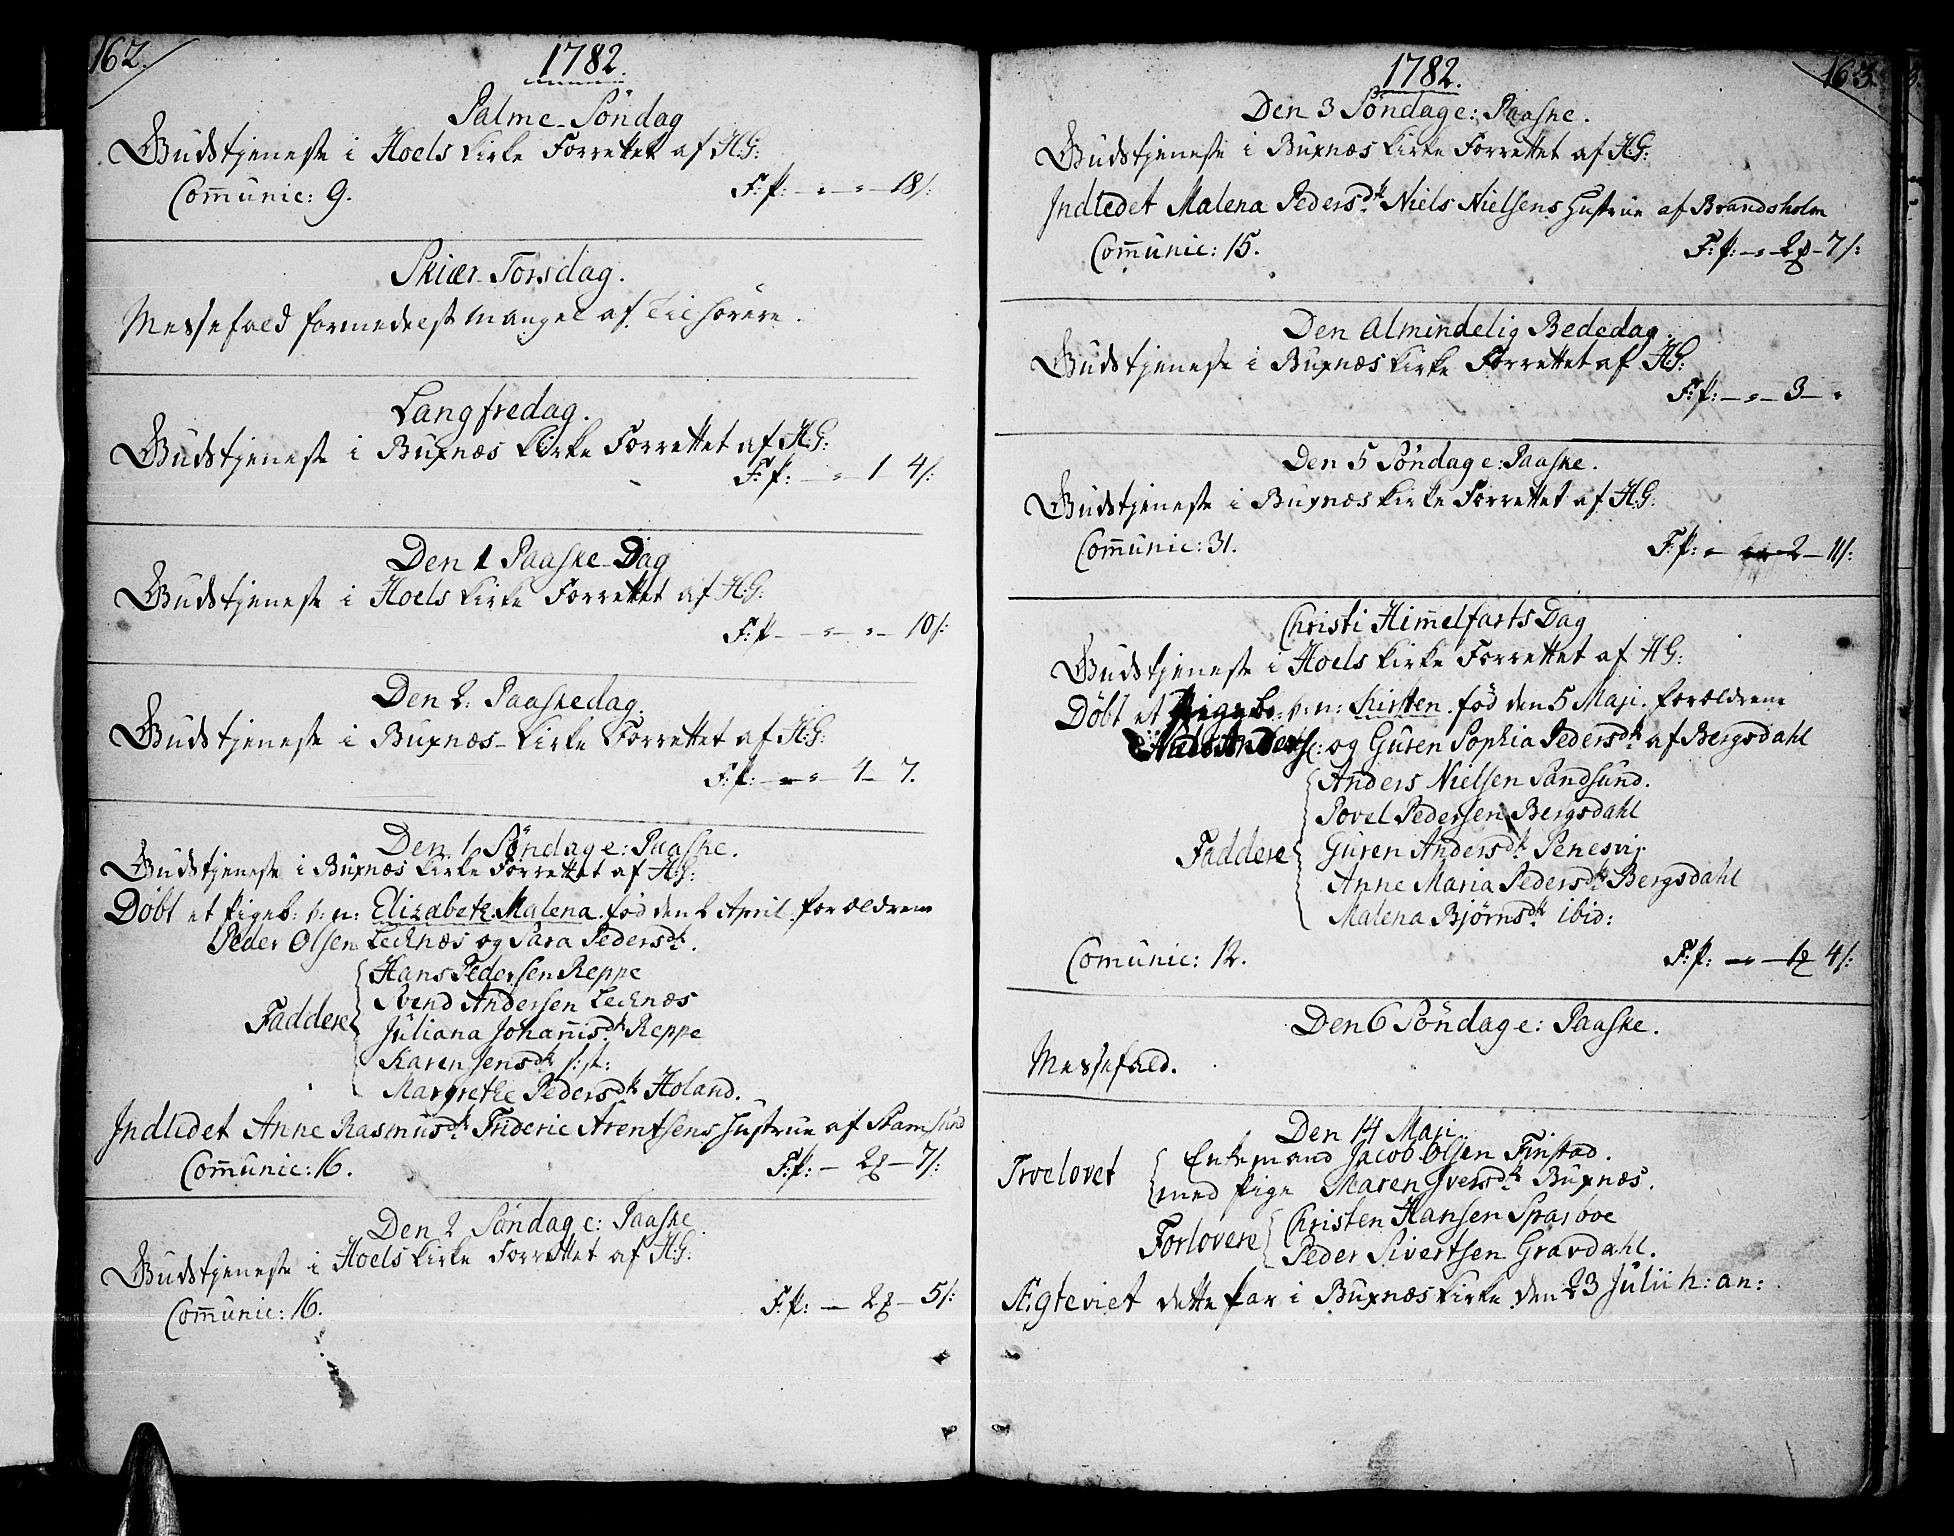 162.
1782.
Palme-Söndag
Gudstjeneste i Hoels Kirke Forrettet af H:G:
Com̄unic: 9. F:p: - " - " - 18 s:
Skiær-Torsdag.
Messefald formedelst mangel af Tilhörere.
Langfredag.
Gudstjeneste i Buxnæs Kirke Forrettet af H:G:
F:p: - " 1 4 s:
Den 1 Paaske-Dag
Gudstjeneste i Hoels Kirke Forrettet af H:G:
F:p - " - " - 10 s:
Den 2. Paaskedag.
Gudstjeneste i Buxnæs-Kirke Forrettet af H:G:
F:p: - " - 4 - 7.
Den 1 Söndag e: Paaske.
Gudstjeneste i Buxnæs Kirke Forrettet af H:G:
Döbt et Pigeb: v: n: Elizabeth Malena. föd den 2 April. Forældrene
Peder Olsen Lecknæs og Sara Pedersdr.
Faddere
Hans Pedersen Reppe
Svend Andersen Lecknæs
Juliana Johannisdr. Reppe
Karen Jensdr s:st:
Margrethe Pedersdr Holand.
Indledet Anne Rasmusdr. Frideric Arentsens Hustrue af Stamsund
Com̄unic: 16. F:p: - 2 - 7 s:
Den 2 Söndag e: Paaske
Gudstjeneste i Hoels Kirke Forrettet af H:G:
Com̄unic: 16. F:p: - 2 - 5 s:
1782.
163.
Den 3 Söndag e: Paaske.
Gudstjeneste i Buxnæs Kirke Forrettet af H:G:
Indledet Malena Pedersdr. Niels Nielsens Hustrue af Brandsholm
Com̄unic: 15. F:p: - " - 2 - 7 s:
Den Almindelig Bededag.
Gudstjeneste i Buxnæs Kirke Forrettet af H:G:
F:p: - " - 3 - "
Den 5 Söndag e: Paaske.
Gudstjeneste i Buxnæs Kirke Forrettet af H:G:
Com̄unic: 31. F:p: " 2 - 11 s:
Christi Him̄elfarts Dag
Gudstjeneste i Hoels Kirke Forrettet af H:G:
Döbt et Pigeb: v: n: Kirsten. föd den 5 Maji. Forældrene
og Guren Sophia Pedersdr. af Bergsdahl
Faddere
Anders Nielsen Sandsund.
Povel Pedersen Bergsdahl
Guren Andersdr.
Anne Maria Pedersdr. Bergsdahl
Malena Björnsdr. ibid:
Comunic: 12. F:p: - " - 1 4 s:
Den 6 Söndag e: Paaske.
Messefald.
Den 14 Maji
Troelovet
Enkemand Jacob Olsen Finstad.
med Pige Maren Iversdr. Buxnæs.
Forlovere
Christen Hansen
Peder Sivertsen Gravdahl.
Ægteviet dette Par i Buxnæs Kirke den 23 Julii h: an: